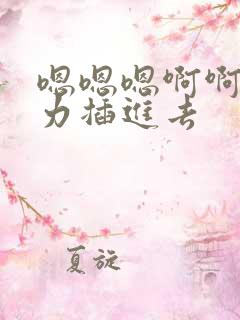 嗯嗯嗯啊啊
力插進去
夏旋